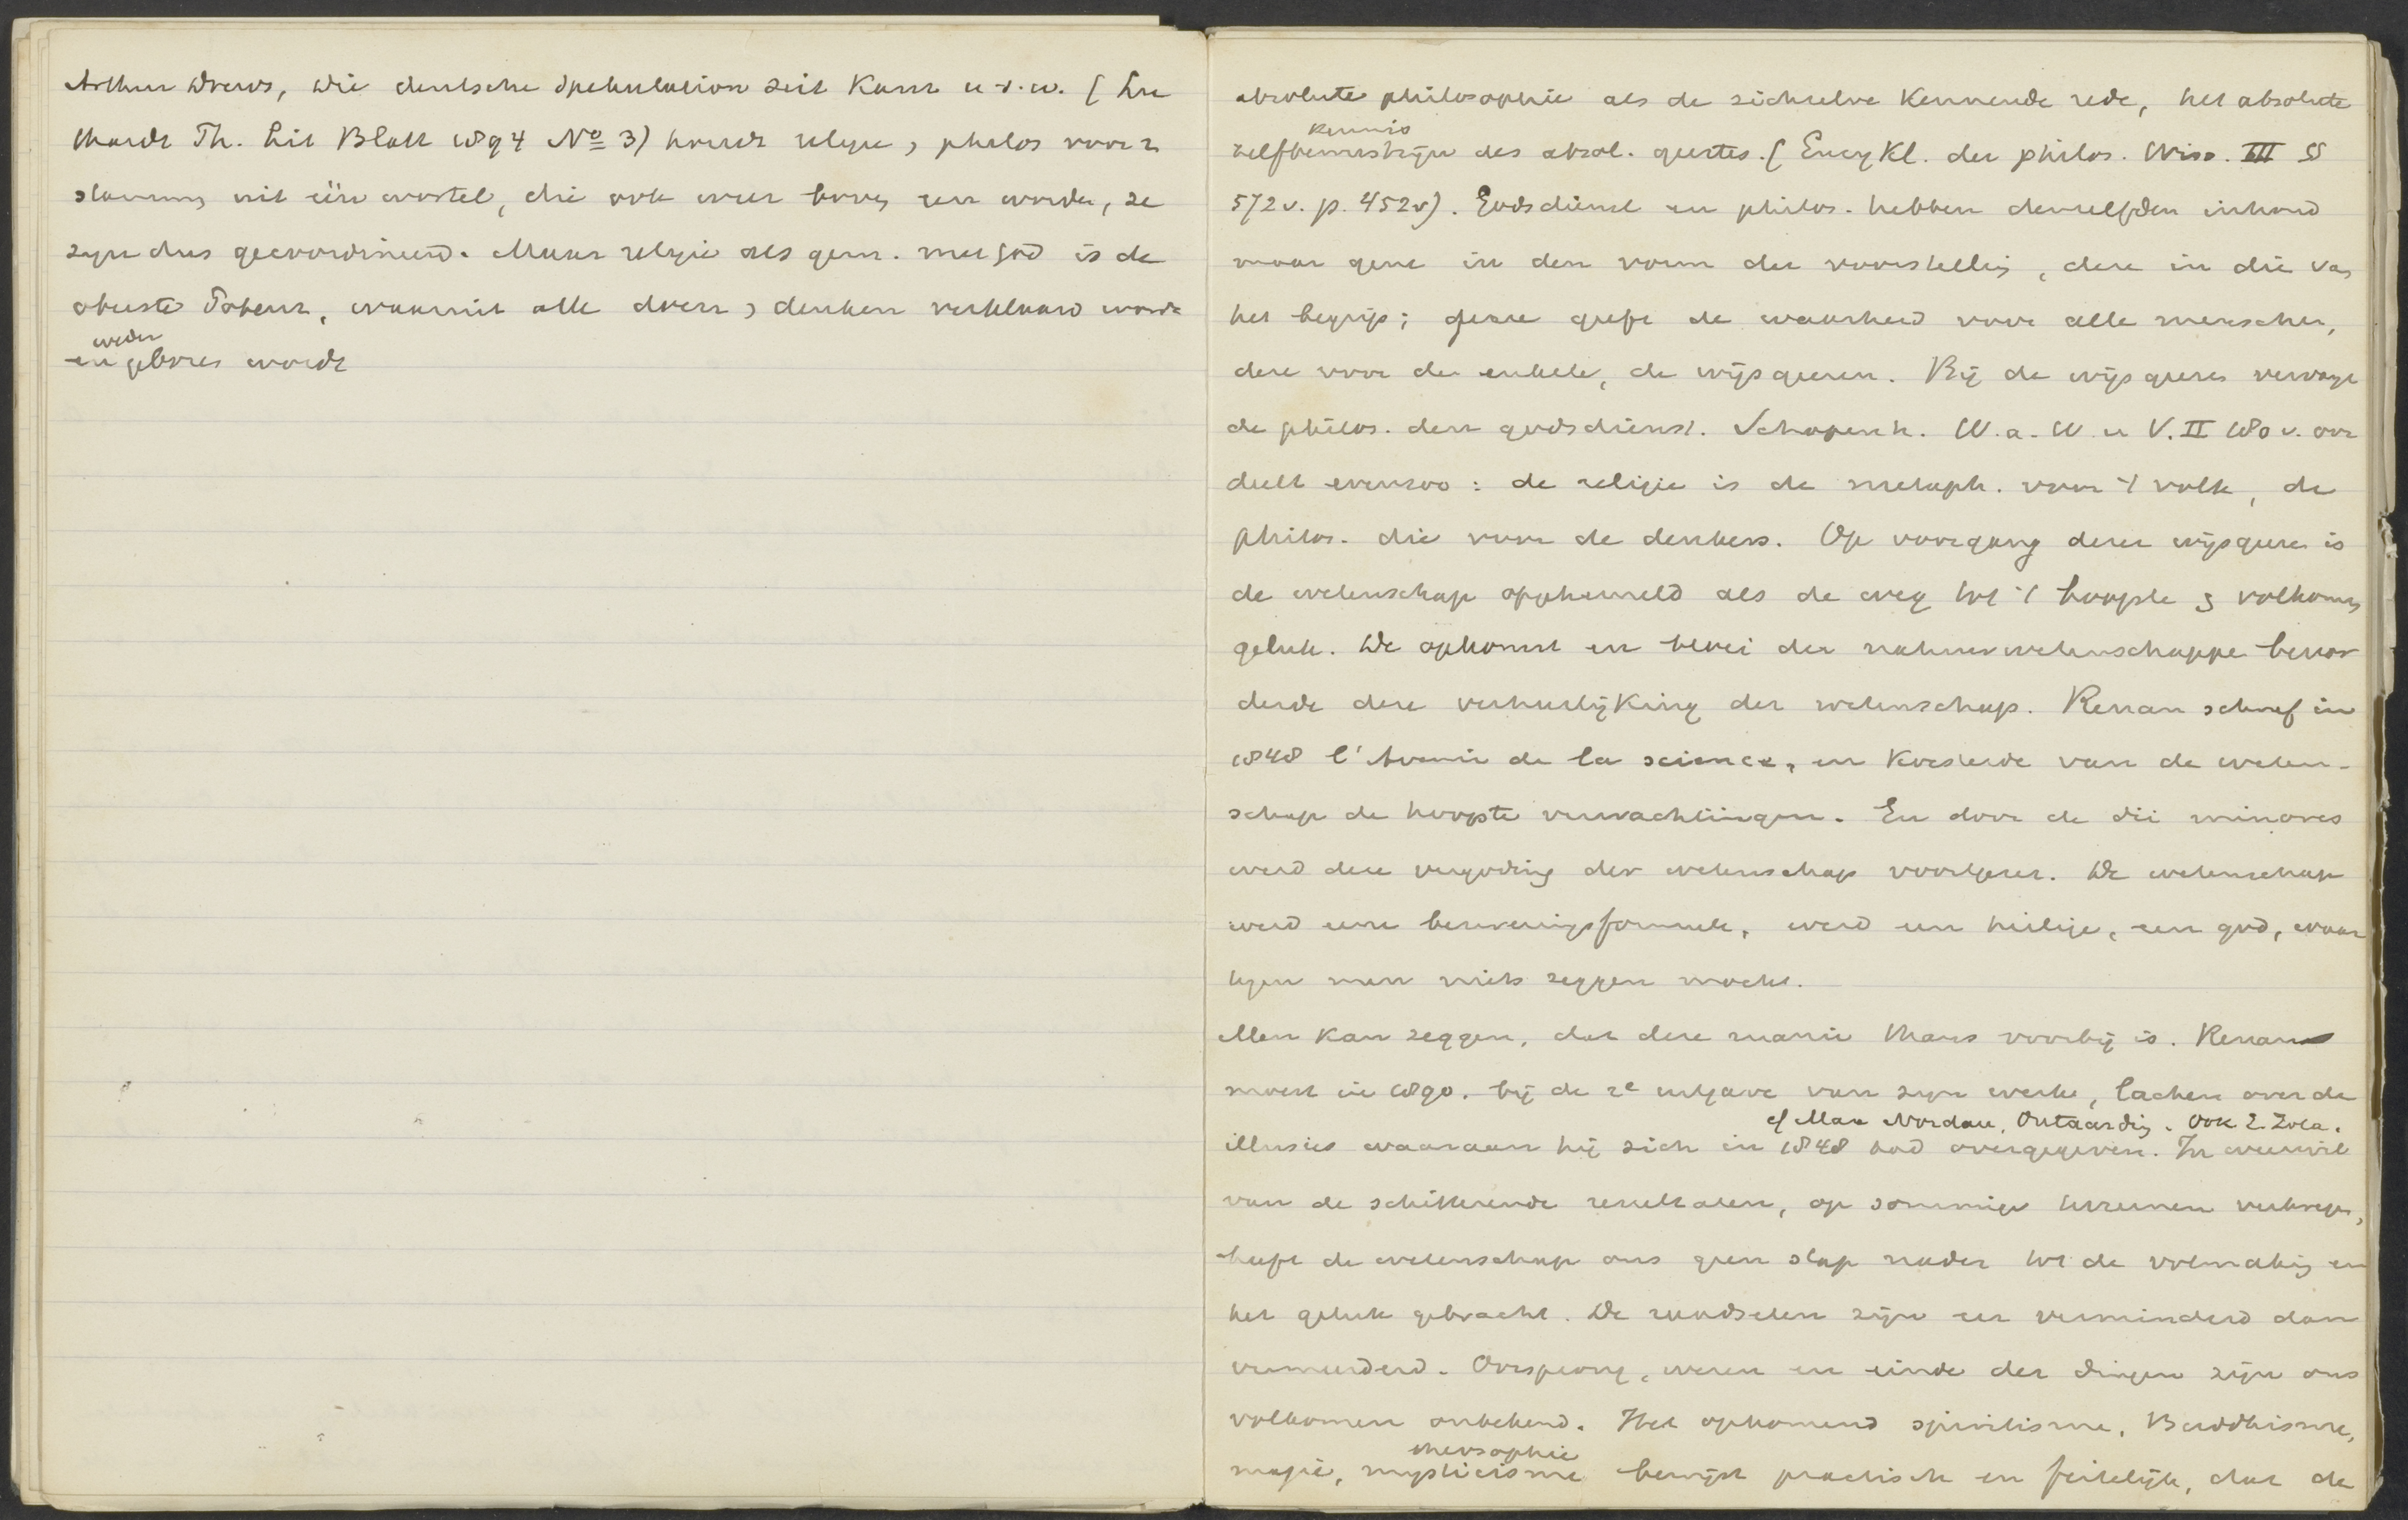 Arthur Drews, Die deutsche Spekulation seit Kant u.s.w. (Lu
thardt Th. Lit Blatt 1894 No 3) houdt religie, philos voor 2
stammen uit één wortel, die ook weer boven een worden, ze
zijn dus gecoordineerd. Maar religie als gem. met God is de
obuste Potenz, waaruit alle doen, denken verklaard wordt
weder
en geboren wordt
absolute philosophie als de zichzelve kennende rede, het absolute
kennis
zelfbewustzijn des absol. geestes. (Encykl. der philos. Wiss. III §§
572v. p. 452v). Godsdienst en philos. hebben denzelfden inhoud
maar gene in den vorm der voorstelling, deze in die van
het begrip; gene geeft de waarheid voor alle menschen,
deze voor de enkele, de wijsgeeren. Bij de wijsgeeren vervangt
de philos. den godsdienst. Schopenh. W. a. W. u V. II 180 v. oor
deelt evenzoo: de religie is de metaph. voor 't volk, de
philos. die voor de denkers. Op voorgang dezer wijsgeeren is
de wetenschap opgehemeld als de weg tot 't hoogste en volkomen
geluk. De opkomst en bloei der natuurwetenschappen bevor
derde deze verheerlijking der wetenschap. Renan schreef in
1848 l'Avenir de la science, en koesterde van de weten-
schap de hoogste verwachtingen. En door de dii minores
werd deze vergoding der wetenschap voortgezet. De wetenschap
werd eene bezweringsformule, werd een heilige, een god, waar
tegen men niets zeggen mocht.
Men kan zeggen, dat deze manie thans voorbij is. Renan
moest in 1890. bij de 2e uitgave van zijn werk, lachen over de
cf Max Nordau, Ontaarding. Ook E. Zola.
illusies waaraan hij zich in 1848 had overgegeven. In weerwil
van de schitterende resultaten, op sommige terreinen verkregen,
heeft de wetenschap ons geen stap nader tot de volmaking en
het geluk gebracht. De raadselen zijn eer verminderd dan
vermeerderd. Oorsprong, wezen en einde der dingen zijn ons
volkomen onbekend. Het opkomend spiritisme, Buddhisme,
theosophie
magie, mysticisme bewijst practisch en feitelijk, dat de